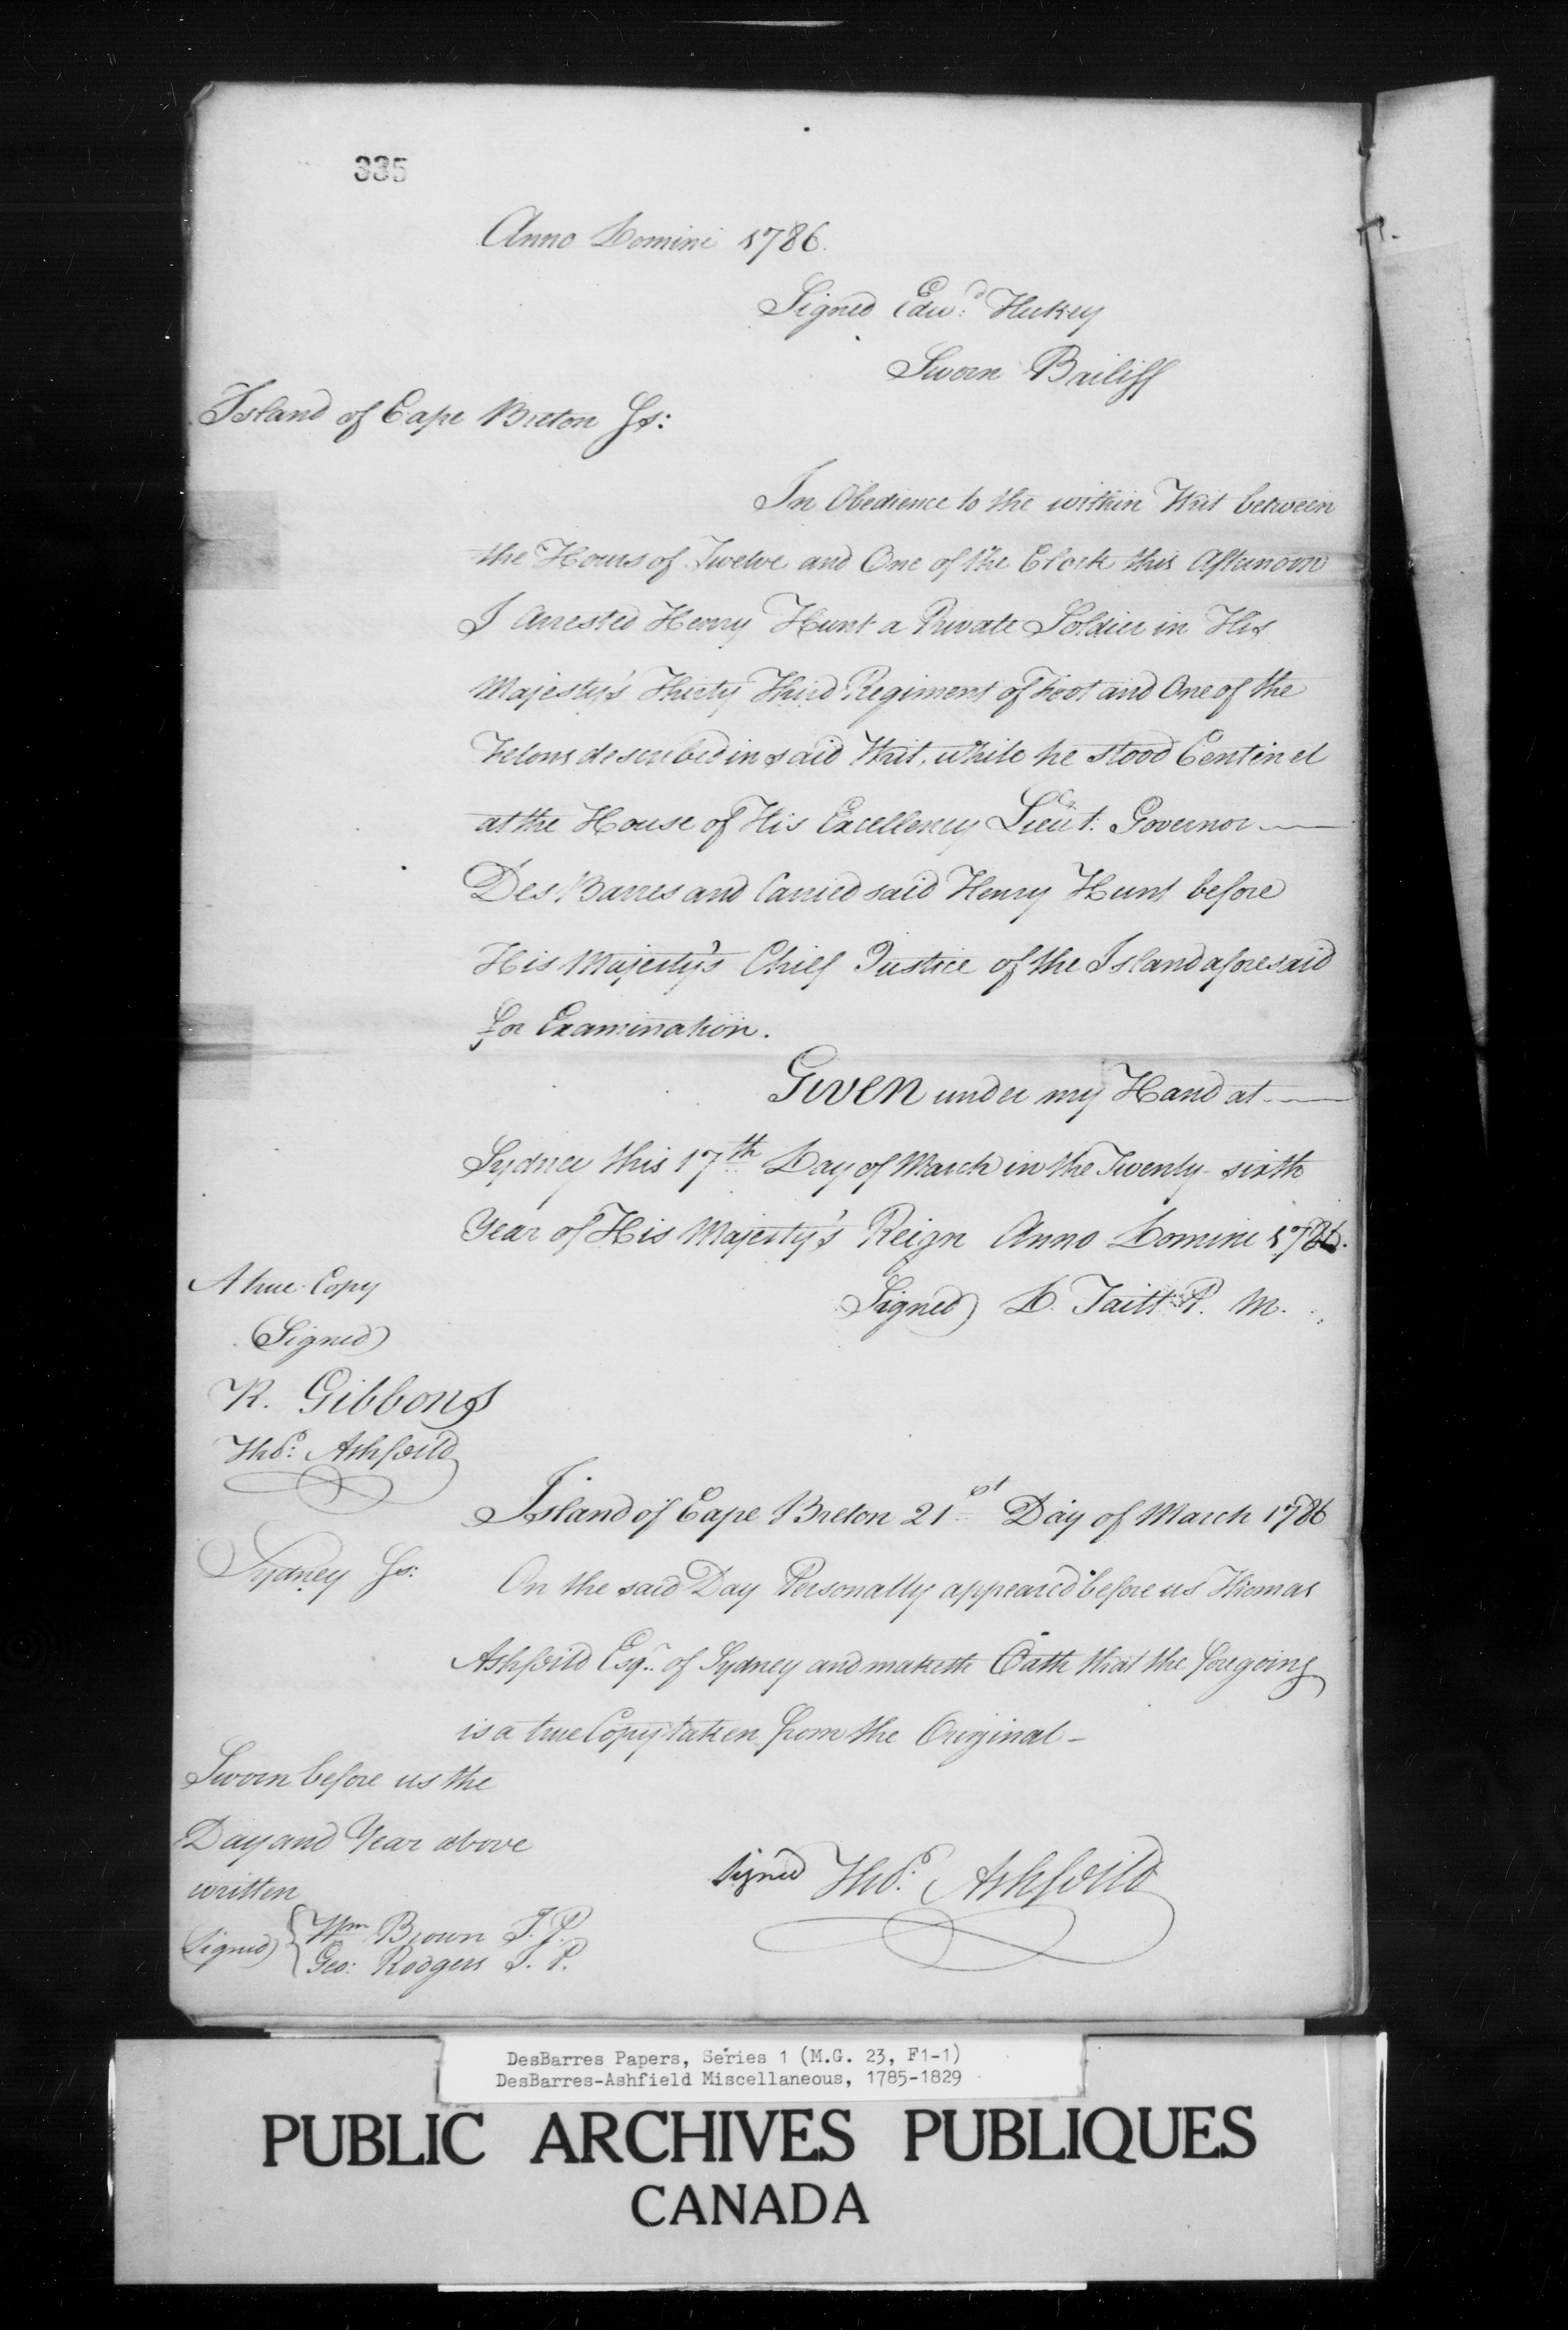 335
Anno Domini 1786.
Signed Edwd: Hickey
Sworn Bailiff
Island of Cape Breton Ss:
In Obedience to the within Writ between
the Hours of Twelve and One of the Clock this Afternoon
I Arrested Henry Hunt a Private Soldier in His
Majesty's Thirty Third Regiment of Foot and One of the
Felons described in said Writ, while he stood Centinel
at the House of His Excellency Lieut. Governor
DesBarres and Carried said Henry Hunt before
His Majesty's Chief Justice of the Island aforesaid
for Examination.
Given under my Hand at
Sydney this 17th Day of March in the Twenty-sixth
Year of His Majesty's Reign Anno Domini 1786.
Signed) D. Taitt P. M.
A true Copy
(Signed)
R. Gibbons
Thos: Ashfeild
Island of Cape Breton 21st Day of March 1786
Sydney Ss:
On the said Day Personally appeared before us Thomas
Ashfeild Esqr. of Sydney and maketh Oath that the foregoing
is a true Copy taken from the Original -
Sworn before us the
Day and Year above
written
signed Thos: Ashfeild
Signed) { Wm Brown J. P.
Geo: Rodgers J. P.
DesBarres Papers, Series 1 (M.G. 23, F1-1)
DesBarres-Ashfield Miscellaneous, 1785-1829
PUBLIC ARCHIVES PUBLIQUES
CANADA